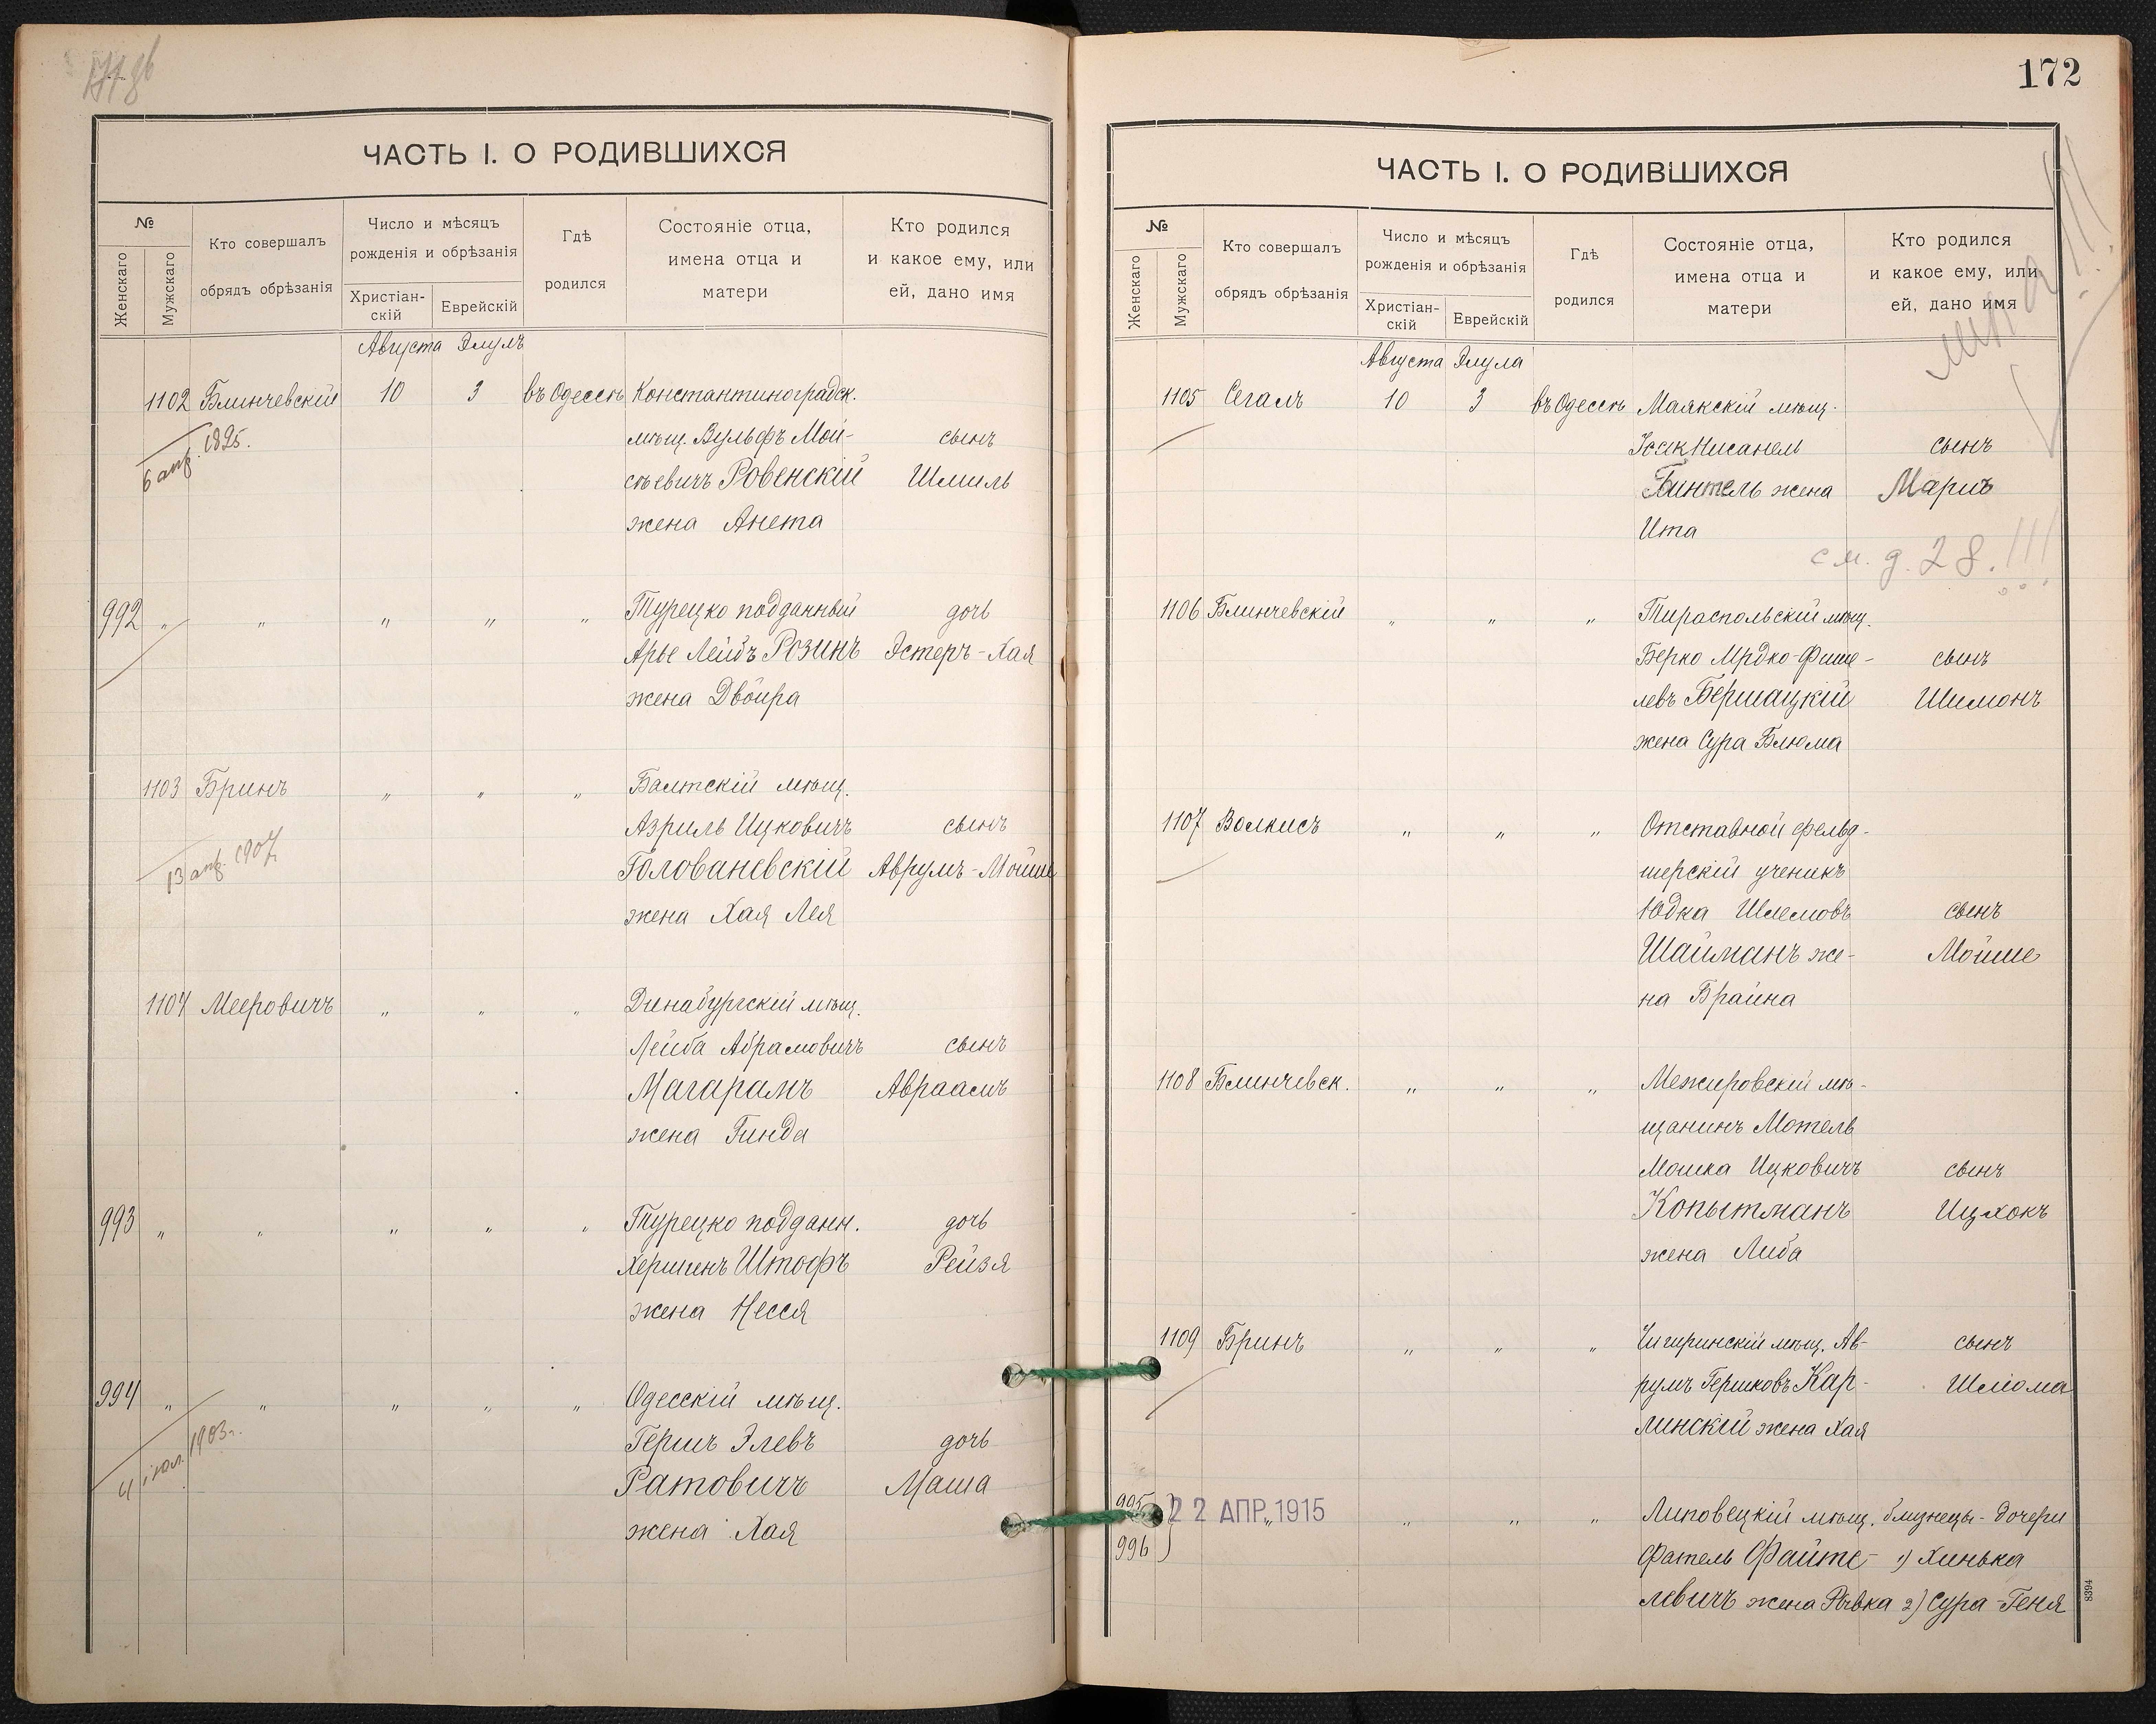 ЧАСТЬ I. О РОДИВШИХСЯ
№
Женскаго
Мужскаго
Кто совершалъ
обрядъ обрѣзанія
Число и мѣсяцъ
рожденія и обрѣзанія
Христіан-
скій
Еврейскій
Гдѣ
родился
Состояніе отца,
имена отца и
матери
Кто родился
и какое ему, или
ей, дано имя
Августа Элулъ
1102 Блинчевскій 10 3 въ Одессѣ Константиноградск.
6 апр. 1895. мѣщ. Вульфъ Мой- сынъ
сѣевичъ Ровенскій Шмиль
жена Анета
992 " " " " " Турецко подданный дочь
Арье Лейбъ Розинъ Эстеръ-Хая
жена Двойра
1103 Бринъ " " " Балтскій мѣщ.
Азриль Ицковичъ сынъ
13 апр. 1907 Голованевскій Аврумъ-Мойше
жена Хая Лея
1104 Мееровичъ " " " Динабургскій мѣщ.
Лейба Абрамовичъ сынъ
Магарамъ Авраамъ
жена Гинда
993 " " " " " Турецко поддан. дочь
Хершенъ Штофъ Рейзя
жена Несся
994 " " " " " Одесскій мѣщ.
4 іюл. 1903г. Гершъ Элевъ дочь
Ратовичъ Маша
жена Хая
172
ЧАСТЬ I. О РОДИВШИХСЯ
№
Женскаго
Мужскаго
Кто совершалъ
обрядъ обрѣзанія
Число и мѣсяцъ
рожденія и обрѣзанія
Христіан-
скій
Еврейскій
Гдѣ
родился
Состояніе отца,
имена отца и
матери
Кто родился
и какое ему, или
ей, дано имя
Августа Элула
1105 Сегалъ 10 3 въ Одессѣ Маякскій мѣщ.
Исак Нисанель сынъ
Бинтель жена Мариъ
Ита
см. д. 28.!!!
1106 Блинчевскій " " " Тираспольскій мѣщ.
Берко Мрдко-Фише- сынъ
левъ Бершацкій Шимонъ
жена Сура Блюма
1107 Волкисъ " " " Отставной фельд-
шерскій ученикъ
Юдка Шлемовъ сынъ
Шайманъ же- Мойше
на Брайна
1108 Блинчевск. " " " Межировскій мѣ-
щанинъ Мотель
Мошка Ицковичъ сынъ
Копытманъ Ицхокъ
жена Либа
1109 Бринъ " " " Чигиринскій мѣщ. Ав- сынъ
румъ Гершковъ Кар- Шліома
линскій жена Хая
995 22 АПР. 1915 " " " Липовецкій мѣщ. близнецы-дочери
996 Фатель Файте- 1) Хинька
левичъ жена Рѣвка 2) Сура-Геня
8394